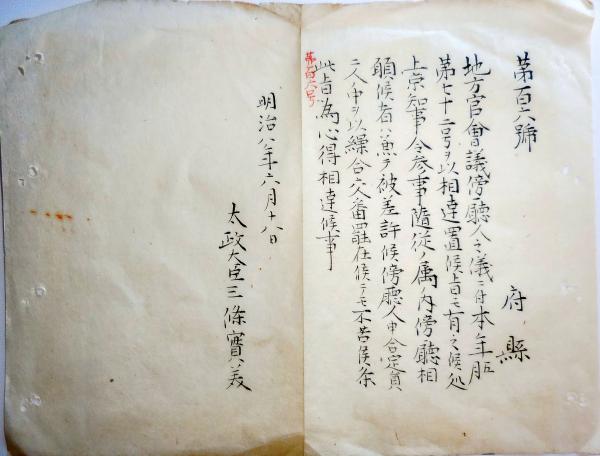 第百六號
府縣
地方官會議傍聽人之儀ニ付本年
第七十二号ヲ以相達置候旨モ有之候処
上京知事令参事隨従ノ属ノ内傍聽相
願候者ハ兼テ被差許候傍聽人申合定員
二人中ヲ以繰合交番罷在候テモ不苦候条
此旨為心得相達候事
第百六号
明治八年六月十八日
太政大臣三條實美